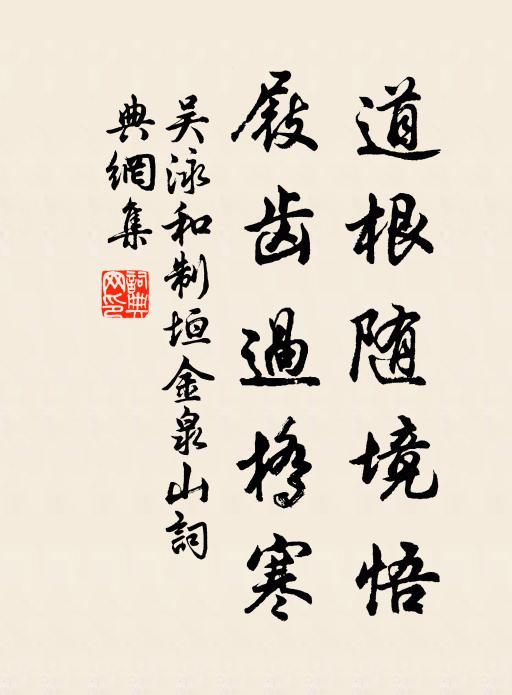 道根随境悟
屐齿過橋寒
吴泳和制垣金泉山詞
典網集
詞典
网印